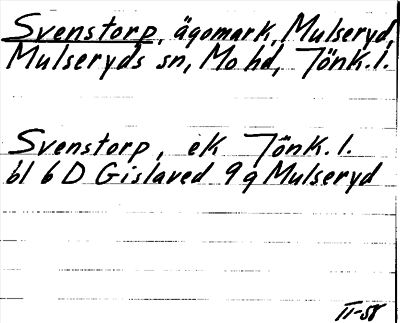 Svenstorp, ägomark, Mulseryd,
Mulseryds sn, Mo hd, Jönk. l.
Svenstorp, ek Jönk. l.
bl 6 D Gislaved 9 g Mulseryd
II-58